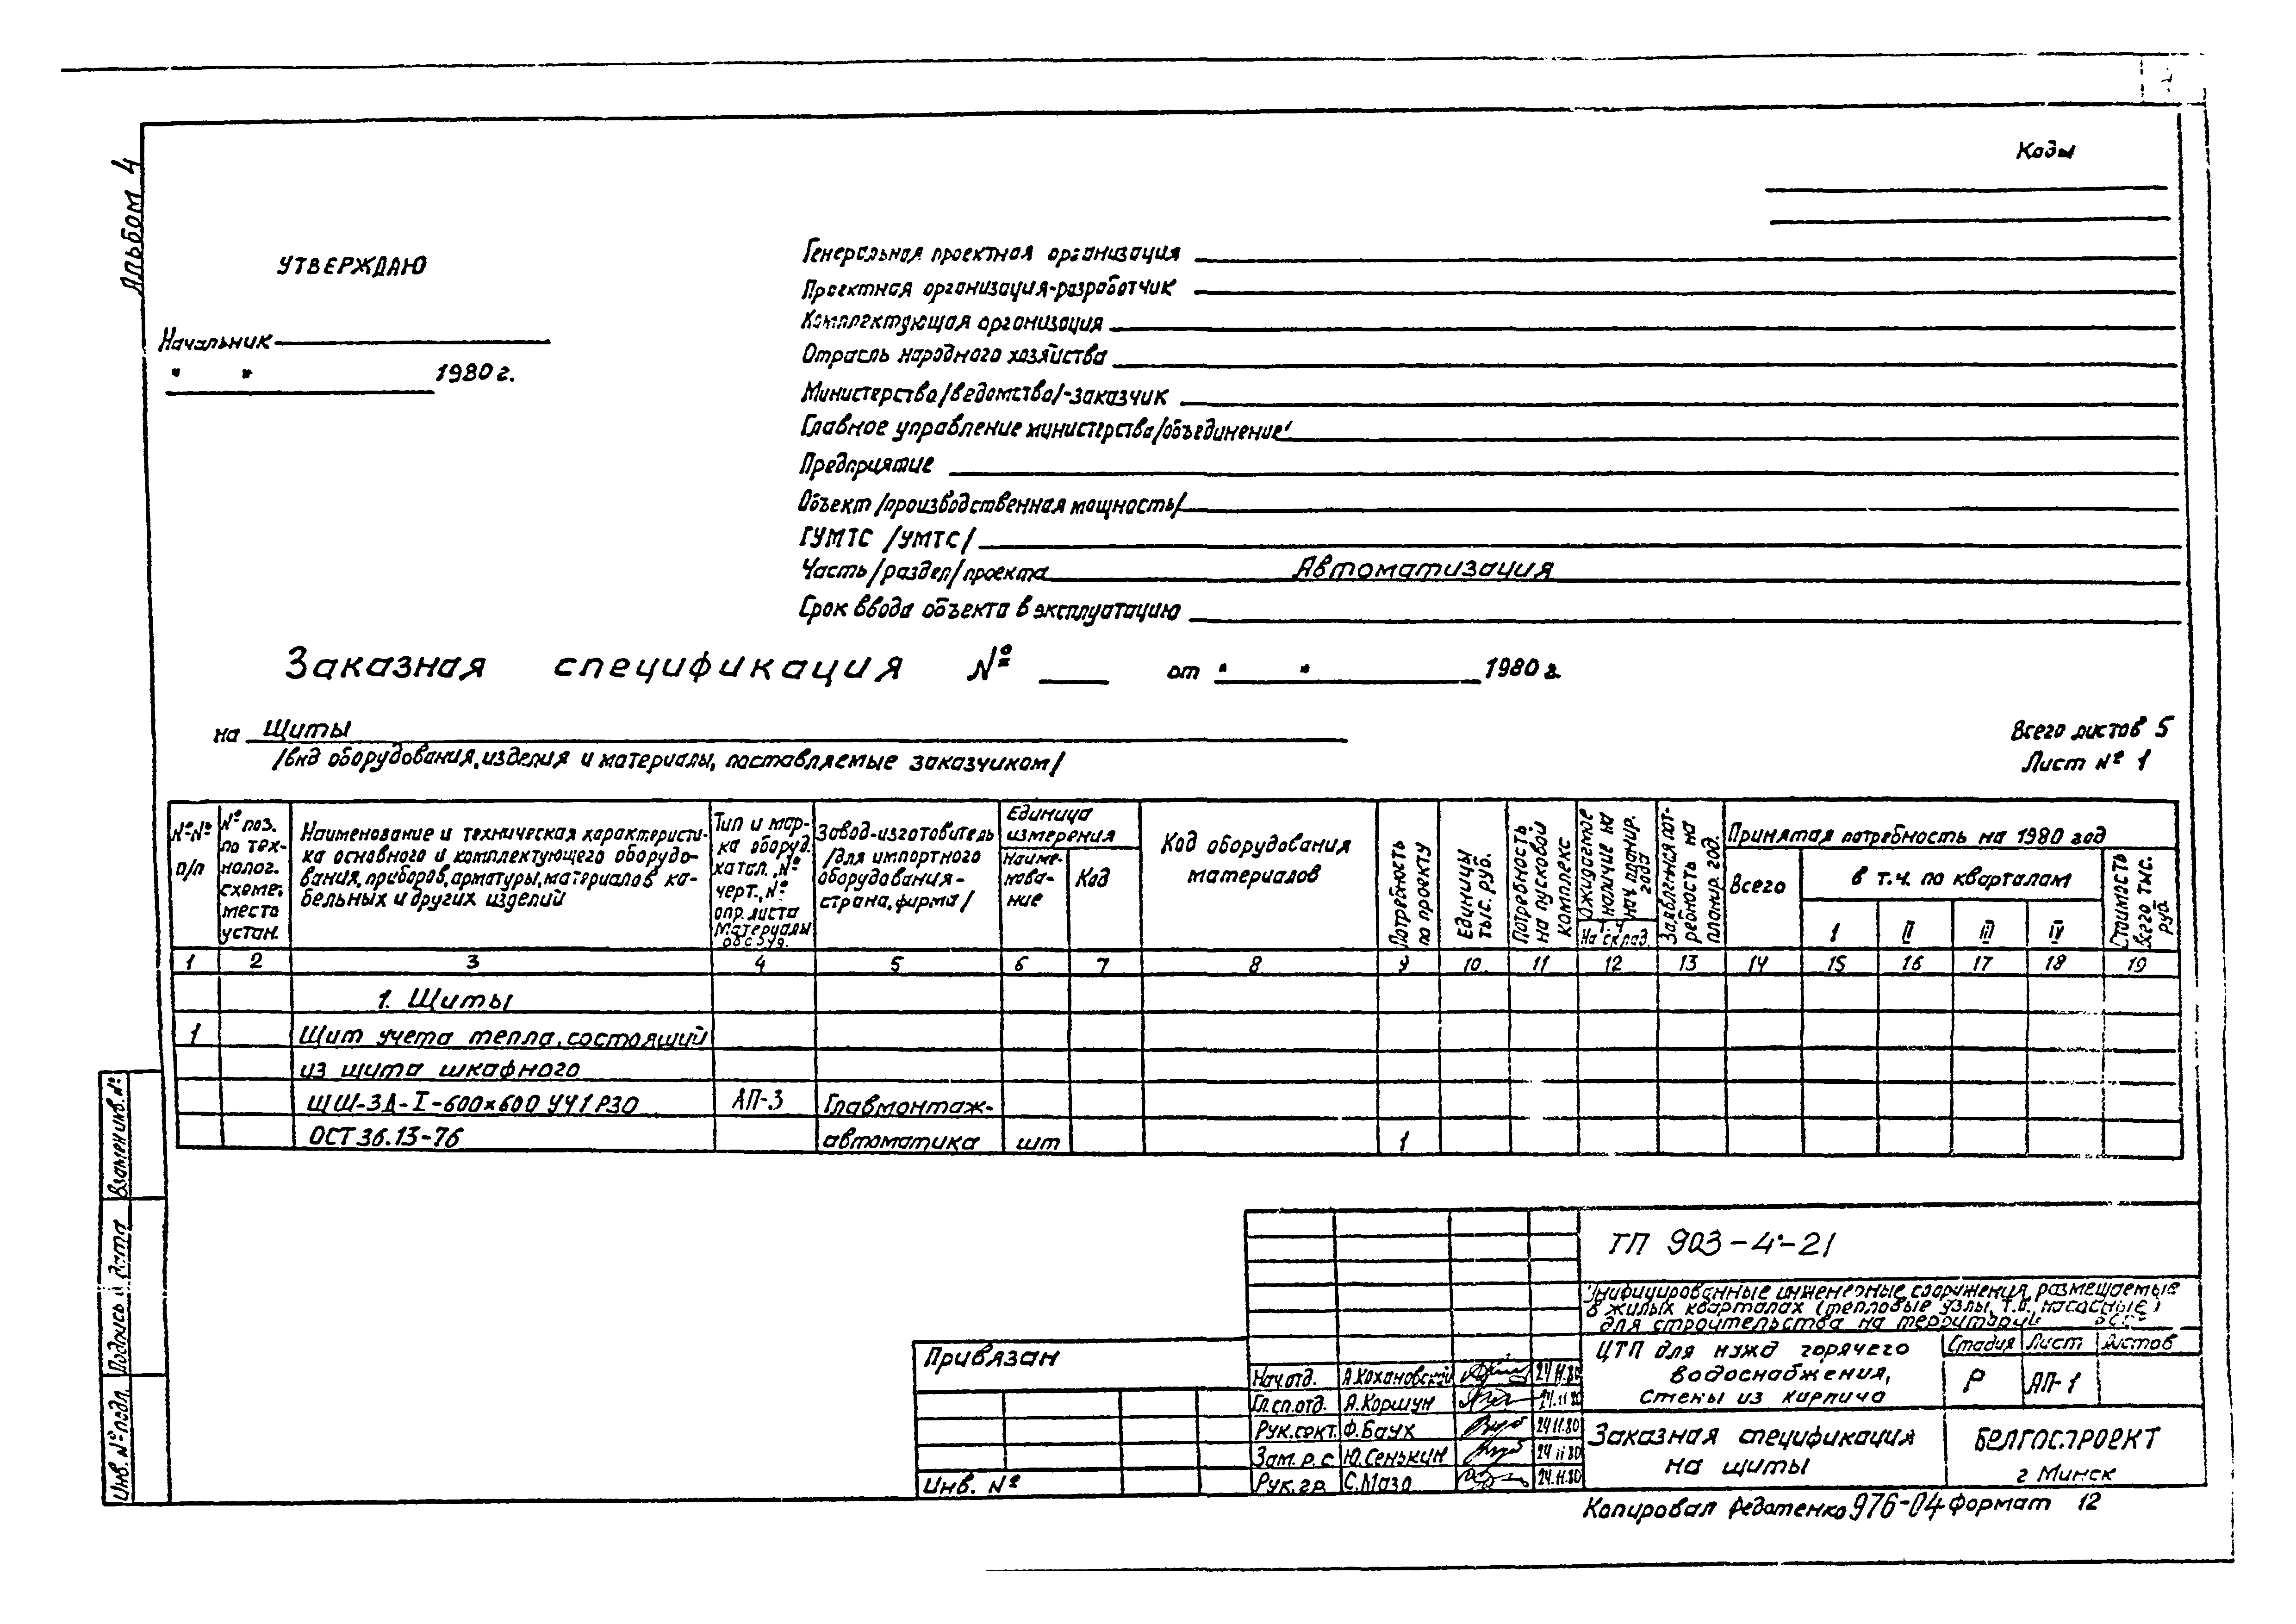 Альбом 4
Коды
УТВЕРЖДАЮ
Начальник
" " 1980 г.
Генеральная проектная организация
Проектная организация-разработчик
Комплектующая организация
Отрасль народного хозяйства
Министерство/ведомство/-заказчик
Главное управление министерства/объединение/
Предприятие
Объект /производственная мощность/
ГУМТС /УМТС/
Часть/раздел/проекта Автоматизация
Срок ввода объекта в эксплуатацию
Заказная спецификация № от " " 1980 г.
на Щиты
/вид оборудования, изделия и материалы, поставляемые заказчиком/
Всего листов 5
Лист № 1
№№
п/п
№ поз.
по тех-
нолог.
схеме;
место
устан.
Наименование и техническая характеристи-
ка основного и комплектующего оборудо-
вания, приборов, арматуры, материалов ка-
бельных и других изделий
Тип и мар-
ка оборуд.
катал., №
черт., №
опр. листа
Материалы
Завод-изготовитель
/для импортного
оборудования-
страна, фирма/
Единица
измерения
Наиме-
нова-
ние
Код
Код оборудования
материалов
Потребность
по проекту
Единицы
тыс. руб.
Потребность
на пусковой
комплекс
Ожидаемое
наличие на
нач. планир.
года
На склад.
Заявленная пот-
ребность на
планир. год.
Принятая потребность на 1980 год
Всего
в т.ч. по кварталам
I II III IV
Стоимость
всего тыс.
руб
1 2 3 4 5 6 7 8 9 10 11 12 13 14 15 16 17 18 19
1. Щиты
1 Щит учета тепла, состоящий
из щита шкафного
ЩШ-ЗД-I-600×600 УЧ1Р30 АП-3 Главмонтаж-
ОСТ 36.13-76 автоматика шт 1
Взамен инв. №
Подпись и дата
Инв. № подл.
ТП 903-4-21
Унифицированные инженерные сооружения, размещаемые
в жилых кварталах (тепловые узлы, т.п., насосные)
для строительства на территории
ЦТП для нужд горячего
водоснабжения,
стены из кирпича
Стадия Лист Листов
Р АП-1
Заказная спецификация
на щиты
БЕЛГОСПРОЕКТ
г Минск
Привязан
Инв. №
Нач.отд. А.Кохановский 24.11.80
Гл.сп.отд. А.Коршун 24.11.80
Рук.сект. Ф.Баух 24.11.80
Зам. р. с Ю.Сенькин 24.11.80
Рук. гр. С.Мазо 24.11.80
Копировал Федотенко 976-04 Формат 12